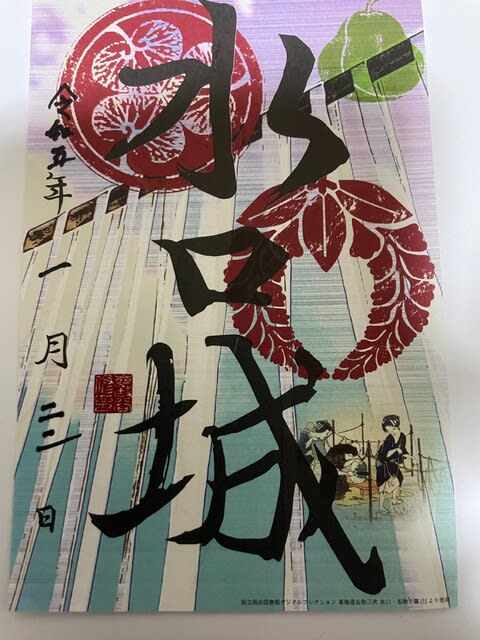 水口城
令和五年
一月
日
国立国会図書館デジタルコレクション 東海道五拾三次 水口・名物干瓢 [1] より使用